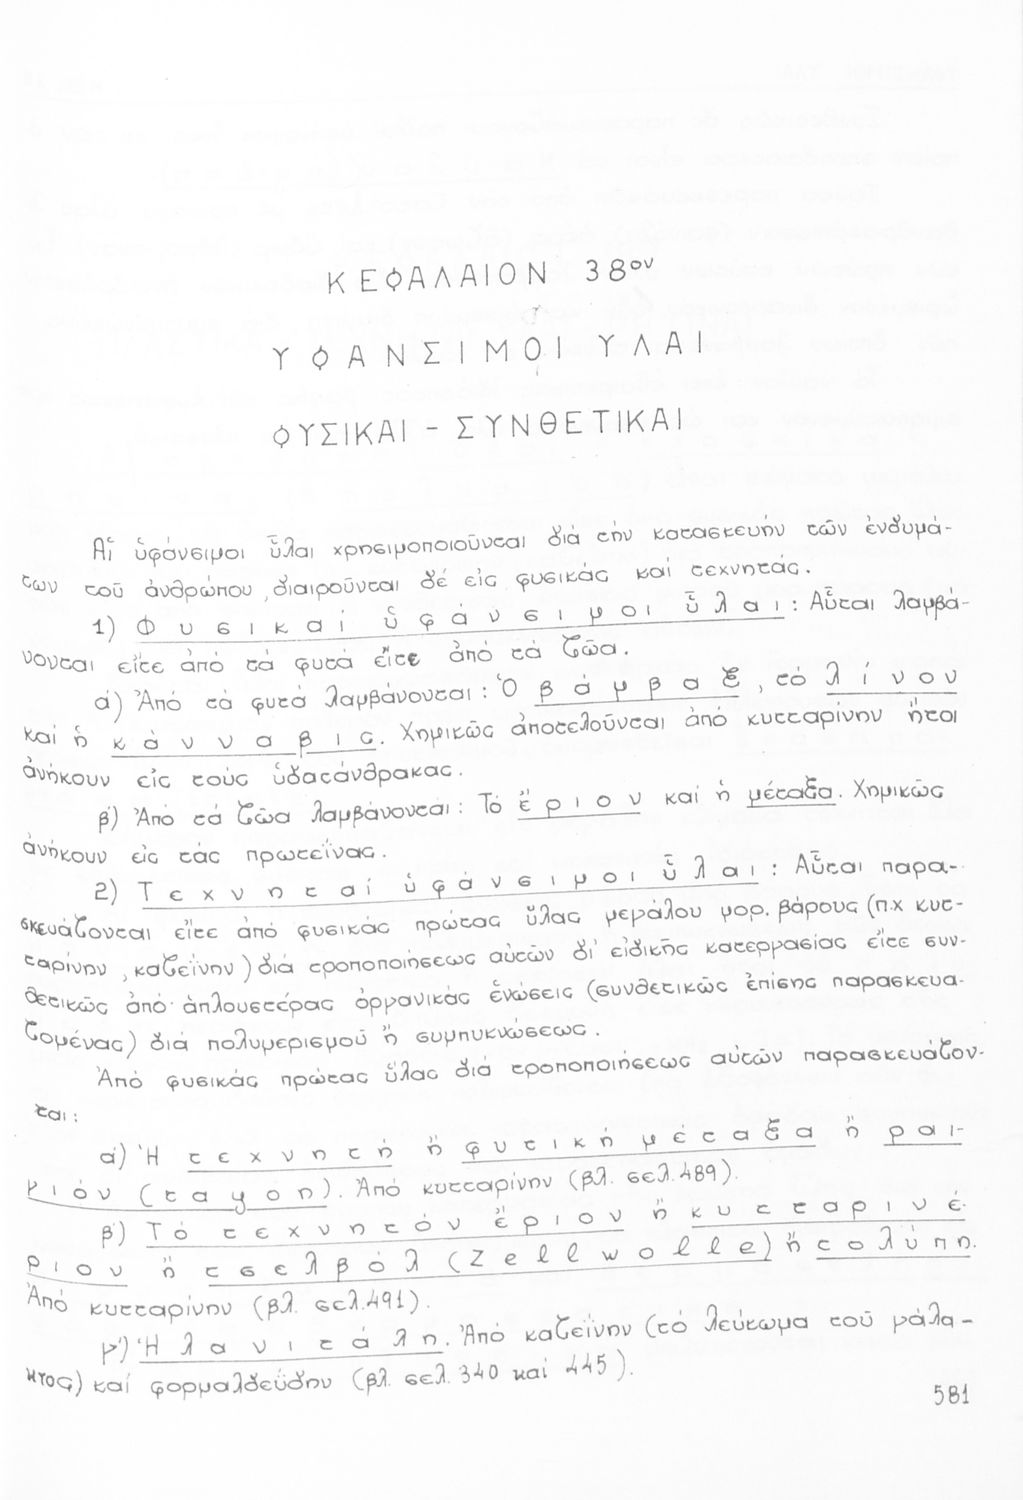 ΚΕΦΑΛΑΙΟΝ 38ον
ΥΦΑΝΣΙΜΟΙ ΥΛΑΙ
ΦΥΣΙΚΑΙ - ΣΥΝΘΕΤΙΚΑΙ
Αἱ ὑφάνσιμοι ὗλαι χρησιμοποιοῦνται διά τήν κατασκευήν τῶν ἐνδυμά-
των τοῦ ἀνθρώπου, διαιροῦνται δέ εἰς φυσικάς καί τεχνητάς.
1) Φυσικαί ὑφάνσιμοι ὗλαι: Αὗται λαμβά-
νονται εἴτε ἀπό τά φυτά εἴτε ἀπό τά ζῶα.
ά) Ἀπό τά φυτά λαμβάνονται: Ὁ βάμβαξ, τό λίνον
καί ἡ κάνναβις. Χημικῶς ἀποτελοῦνται ἀπό κυτταρίνην ἤτοι
ἀνήκουν εἰς τούς ὑδατάνθρακας.
β) Ἀπό τά ζῶα λαμβάνονται: Τό ἔριον καί ἡ μέταξα. Χημικῶς
ἀνήκουν εἰς τάς πρωτεΐνας.
2) Τεχνηταί ὑφάνσιμοι ὗλαι: Αὗται παρα-
σκευάζονται εἴτε ἀπό φυσικάς πρώτας ὕλας μεγάλου μορ. βάρους (π.χ κυτ-
ταρίνην, καζεΐνην) διά τροποποιήσεως αὐτῶν δι' εἰδικῆς κατεργασίας εἴτε συν-
θετικῶς ἀπό ἁπλουστέρας ὀργανικάς ἑνώσεις (συνθετικῶς ἐπίσης παρασκευα-
ζομένας) διά πολυμερισμοῦ ἤ συμπυκνώσεως.
Ἀπό φυσικάς πρώτας ὕλας διά τροποποιήσεως αὐτῶν παρασκευάζον-
ται:
ά) Ἡ τεχνητή ἤ φυτική μέταξα ἤ ραι-
γιόν (rayon). Ἀπό κυτταρίνην (βλ. σελ. 489).
β) Τό τεχνητόν ἔριον ἤ κυτταρινέ-
ριον ἤ τσελβόλ (Zellwolle) ἤ τολύπη.
Ἀπό κυτταρίνην (βλ. σελ. 491).
γ) Ἡ λανιτάλη. Ἀπό καζεΐνην (τό λεύκωμα τοῦ γάλα-
κτος) καί φορμαλδεΰδην (βλ. σελ. 340 καί 445).
581